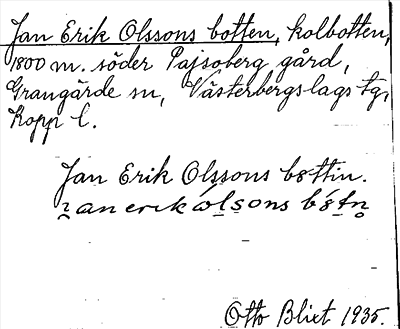 Jan Erik Olssons botten, kolbotten,
1800 m. söder Pajsoberg gård,
Grangärde sn, Västerbergslags tg,
Kopp l.
Jan Erik Olssons bottin.
Otto Blixt 1935.